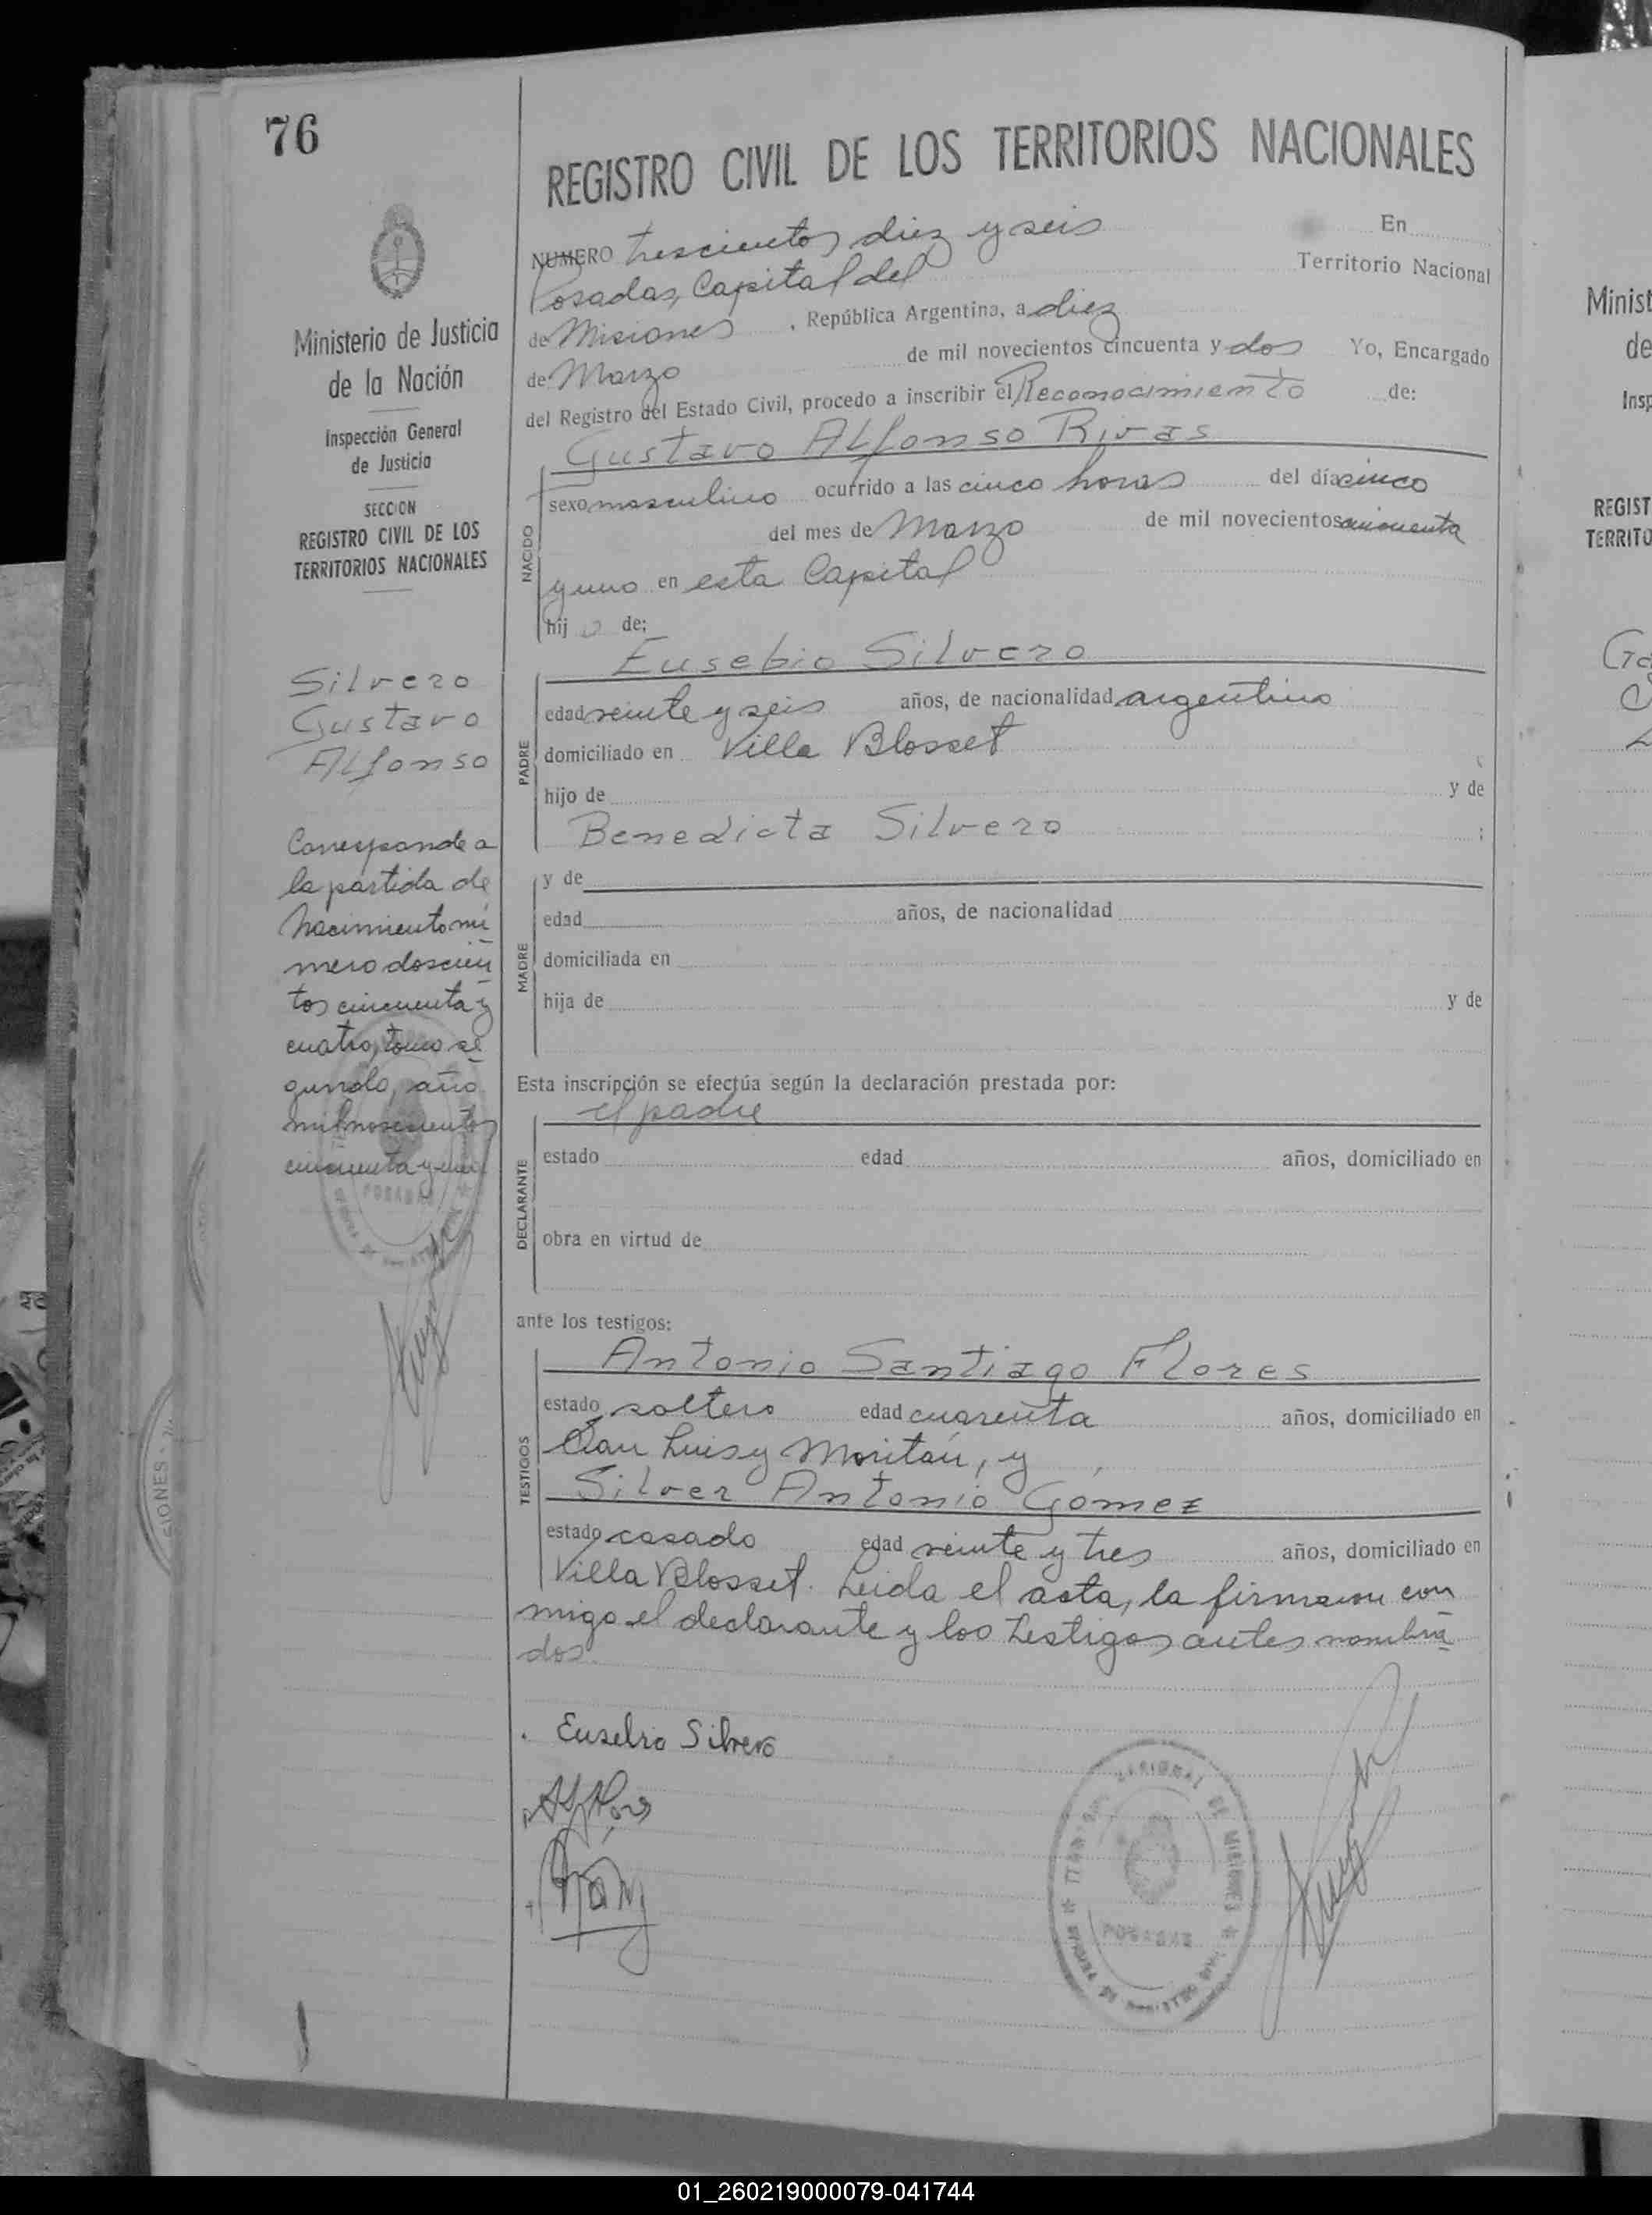 76
Ministerio de Justicia
de la Nación
Inspección General
de Justicia
SECCION
REGISTRO CIVIL DE LOS
TERRITORIOS NACIONALES
Silvero
Gustavo
Alfonso
Corresponde a
la partida de
Nacimiento nú
mero doscien
tos cincuenta y
cuatro, tomo se
gundo, año
mil novecientos
cincuenta y uno
POSADAS
REGISTRO CIVIL DE LOS TERRITORIOS NACIONALES
NUMERO trescientos diez y seis En
Posadas, Capital del Territorio Nacional
de Misiones, República Argentina, a diez
de Marzo de mil novecientos cincuenta y dos Yo, Encargado
del Registro del Estado Civil, procedo a inscribir el Reconocimiento de:
Gustavo Alfonso Rivas
NACIDO
sexo masculino ocurrido a las cinco horas del día cinco
del mes de Marzo de mil novecientos cincuenta
y uno en esta Capital
hijo de:
Eusebio Silvero
PADRE
edad veinte y seis años, de nacionalidad argentino
domiciliado en Villa Blosset
hijo de y de
Benedicta Silvero ;
MADRE
y de
edad años, de nacionalidad
domiciliada en
hija de y de
Esta inscripción se efectúa según la declaración prestada por:
el padre
DECLARANTE
estado edad años, domiciliado en
obra en virtud de
ante los testigos:
Antonio Santiago Flores
TESTIGOS
estado soltero edad cuarenta años, domiciliado en
San Luis y Moritán, y
Silver Antonio Gómez
estado casado edad veinte y tres años, domiciliado en
Villa Blosset. Leida el acta, la firmaron con
migo el declarante y los testigos antes nombra
dos.
Eusebio Silvero
POSADAS
Minist
de
Insp
REGIST
TERRITO
01_260219000079-041744